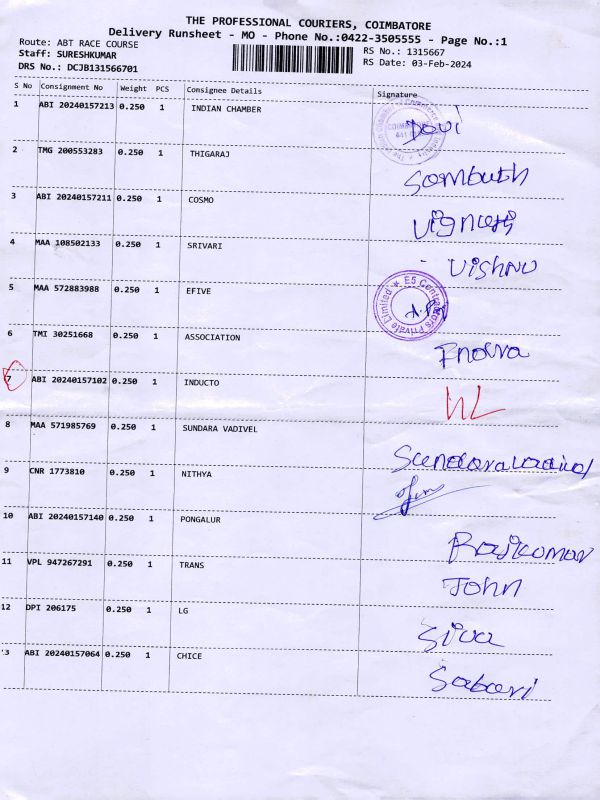 THE PROFESSIONAL COURIERS, COIMBATORE
Delivery Runsheet - MO - Phone No.:0422-3505555 - Page No.:1
Route: ABT RACE COURSE RS No.: 1315667
Staff: SURESHKUMAR RS Date: 03-Feb-2024
DRS No.: DCJB131566701
S No Consignment No Weight PCS Consignee Details Signature
1 ABI 20240157213 0.250 1 INDIAN CHAMBER
2 TMG 200553283 0.250 1 THIGARAJ
3 ABI 20240157211 0.250 1 COSMO Vignesh
4 MAA 108502133 0.250 1 SRIVARI Vishnu
5 MAA 572883988 0.250 1 EFIVE E5 Contractors Private Limited
6 TMI 30251668 0.250 1 ASSOCIATION
7 ABI 20240157102 0.250 1 INDUCTO NL
8 MAA 571985769 0.250 1 SUNDARA VADIVEL
9 CNR 1773810 0.250 1 NITHYA
10 ABI 20240157140 0.250 1 PONGALUR Rajkumar
11 VPL 947267291 0.250 1 TRANS John
12 DPI 206175 0.250 1 LG Siva
'3 ABI 20240157064 0.250 1 CHICE Sabari